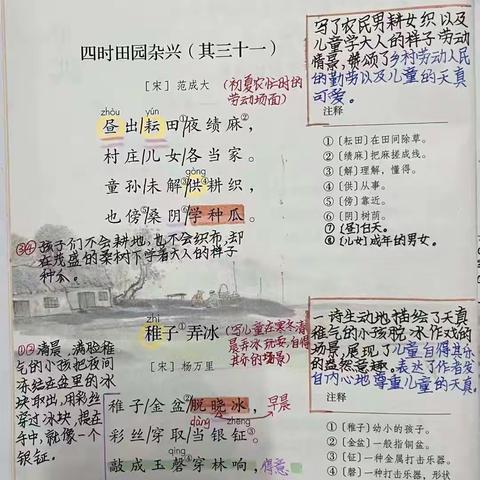 四时田园杂兴（其三十一）
[宋] 范成大
(初夏农忙时的
劳动场面)
写了农民男耕女织以及
儿童学大人的样子劳动
情景，赞颂了乡村劳动人民
的勤劳以及儿童的天真
可爱。
zhòu yún
昼出/耘田/夜绩麻②，
村庄/儿女/各当家。
gòng
童孙/未解③/供④耕织，
也傍⑤桑阴⑥/学种瓜。
注释
①〔耘田〕在田间除草。
②〔绩麻〕把麻搓成线。
③〔解〕理解，懂得。
④〔供〕从事。
⑤〔傍〕靠近。
⑥〔阴〕树荫。
⑦〔昼〕白天。
⑧〔儿女〕成年的男女。
③④孩子们不会耕地，也不会织布，却
在茂盛的桑树下学着大人的样子
种瓜。
zhì
稚子①弄冰
(写儿童在寒冬清
晨弄冰玩耍，自得
其乐的场景)
[宋] 杨万里
一诗生动地描绘了天真
稚气的小孩脱冰作戏的
场景，展现了儿童自得其乐
的盎然意趣。表达了作者发
自内心地尊重儿童的天真。
①②清晨，满脸稚
气的小孩把夜间
冻结在盆里的冰
块取出，用彩丝
穿过冰块，提在
手中，就像一个
银钲。
稚子/金盆②/脱晓冰，
早晨
dàng zhēng
彩丝/穿取/当银钲③。
敲成玉磬④穿林响，
得意
注释
①〔稚子〕幼小的孩子。
②〔金盆〕一般指铜盆。
③〔钲〕一种金属打击乐器。
④〔磬〕一种打击乐器，形状